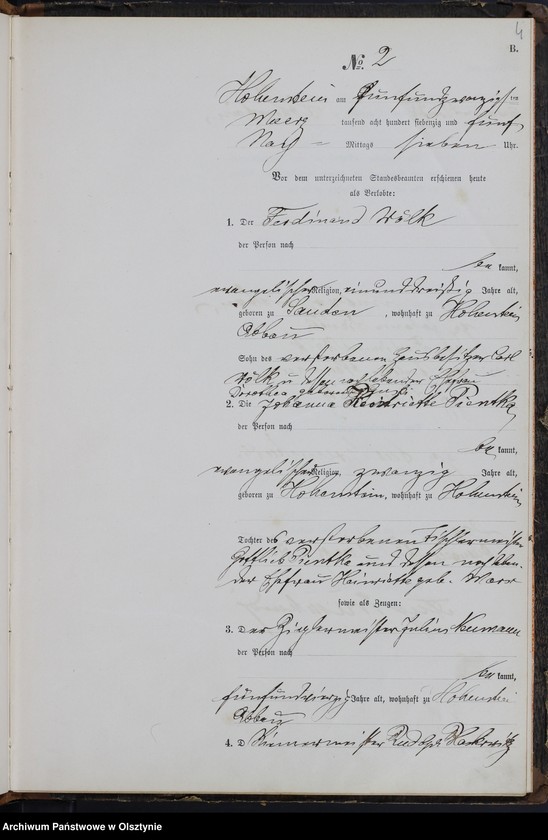 4
B.
No. 2
Hohenstein am Fünfundzwanzigsten
Maerz tausend acht hundert siebenzig und fünf
Nach = Mittags sieben Uhr.
Vor dem unterzeichneten Standesbeamten erschienen heute
als Verlobte:
1. Der Ferdinand Wölk
der Person nach
be kannt,
evangelischer Religion, einunddreißig Jahre alt,
geboren zu, wohnhaft zu Hohenstein
Abbau
Sohn des verstorbenen Hausbesitzer Carl
Wölk u dessen nachlebender Ehefrau
Dorothea geborene
2. Die Johanna Henriette Pientka
der Person nach
be kannt,
evangelischer Religion, zwanzig Jahre alt,
geboren zu Hohenstein, wohnhaft zu Hohenstein
Tochter des verstorbenen Tischlermeister
Gottlieb Pientka und dessen nachleben-
der Ehefrau Heinriette geb.
sowie als Zeugen:
3. Der Zieglermeister Julius Neumann
der Person nach
be kannt,
fünfundvierzig Jahre alt, wohnhaft zu Hohenstein
Abbau
4. D Rudolph
Archiwum Państwowe w Olsztynie